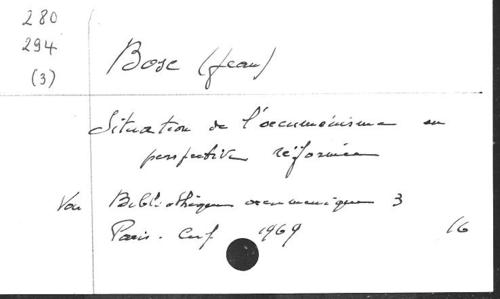 280
294
(3)
Bosc (Jean)
Situation de l'œcuménisme en
perspective réformée
Voir Bibliothèque œcuménique 3
Paris. Cerf 1969 16